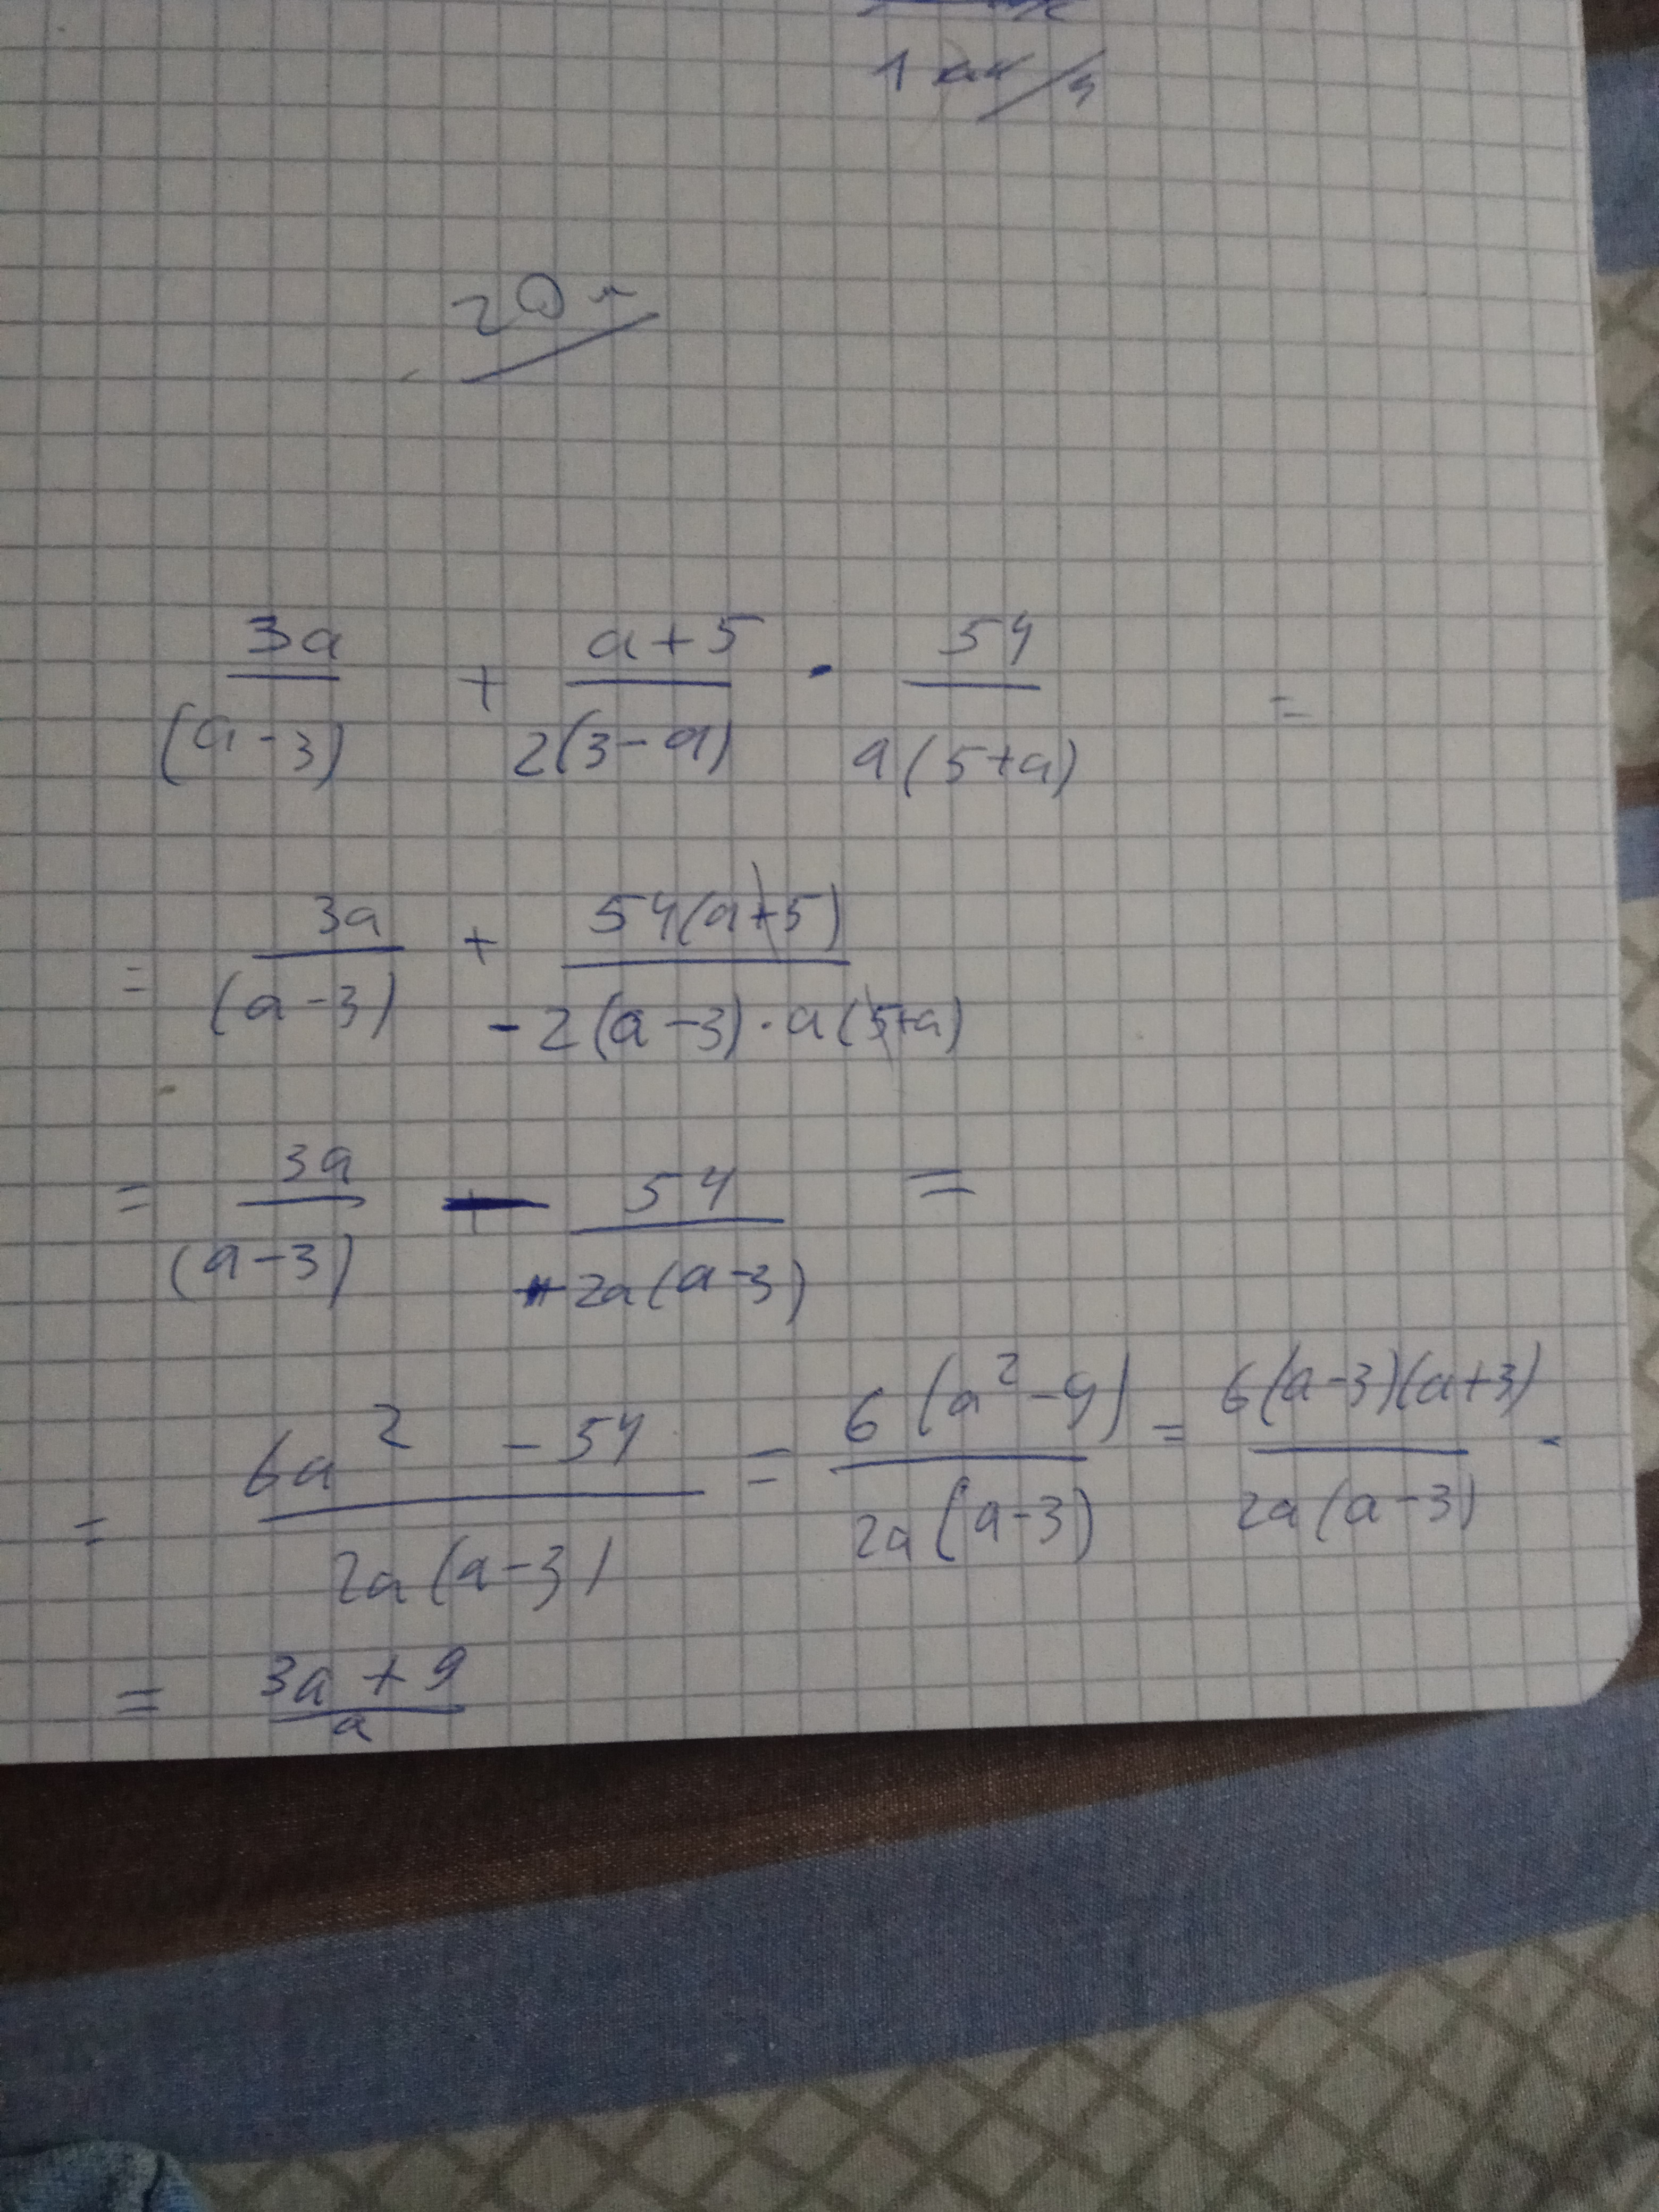 3a/(a-3) + a+5/2(3-a) · 54/a(5+a) =
= 3a/(a-3) + 54(a+5)/-2(a-3)·a(5+a)
= 3a/(a-3) - 54/2a(a-3) =
= 6a² - 54/2a(a-3) = 6(a²-9)/2a(a-3) = 6(a-3)(a+3)/2a(a-3) -
= 3a+9/a